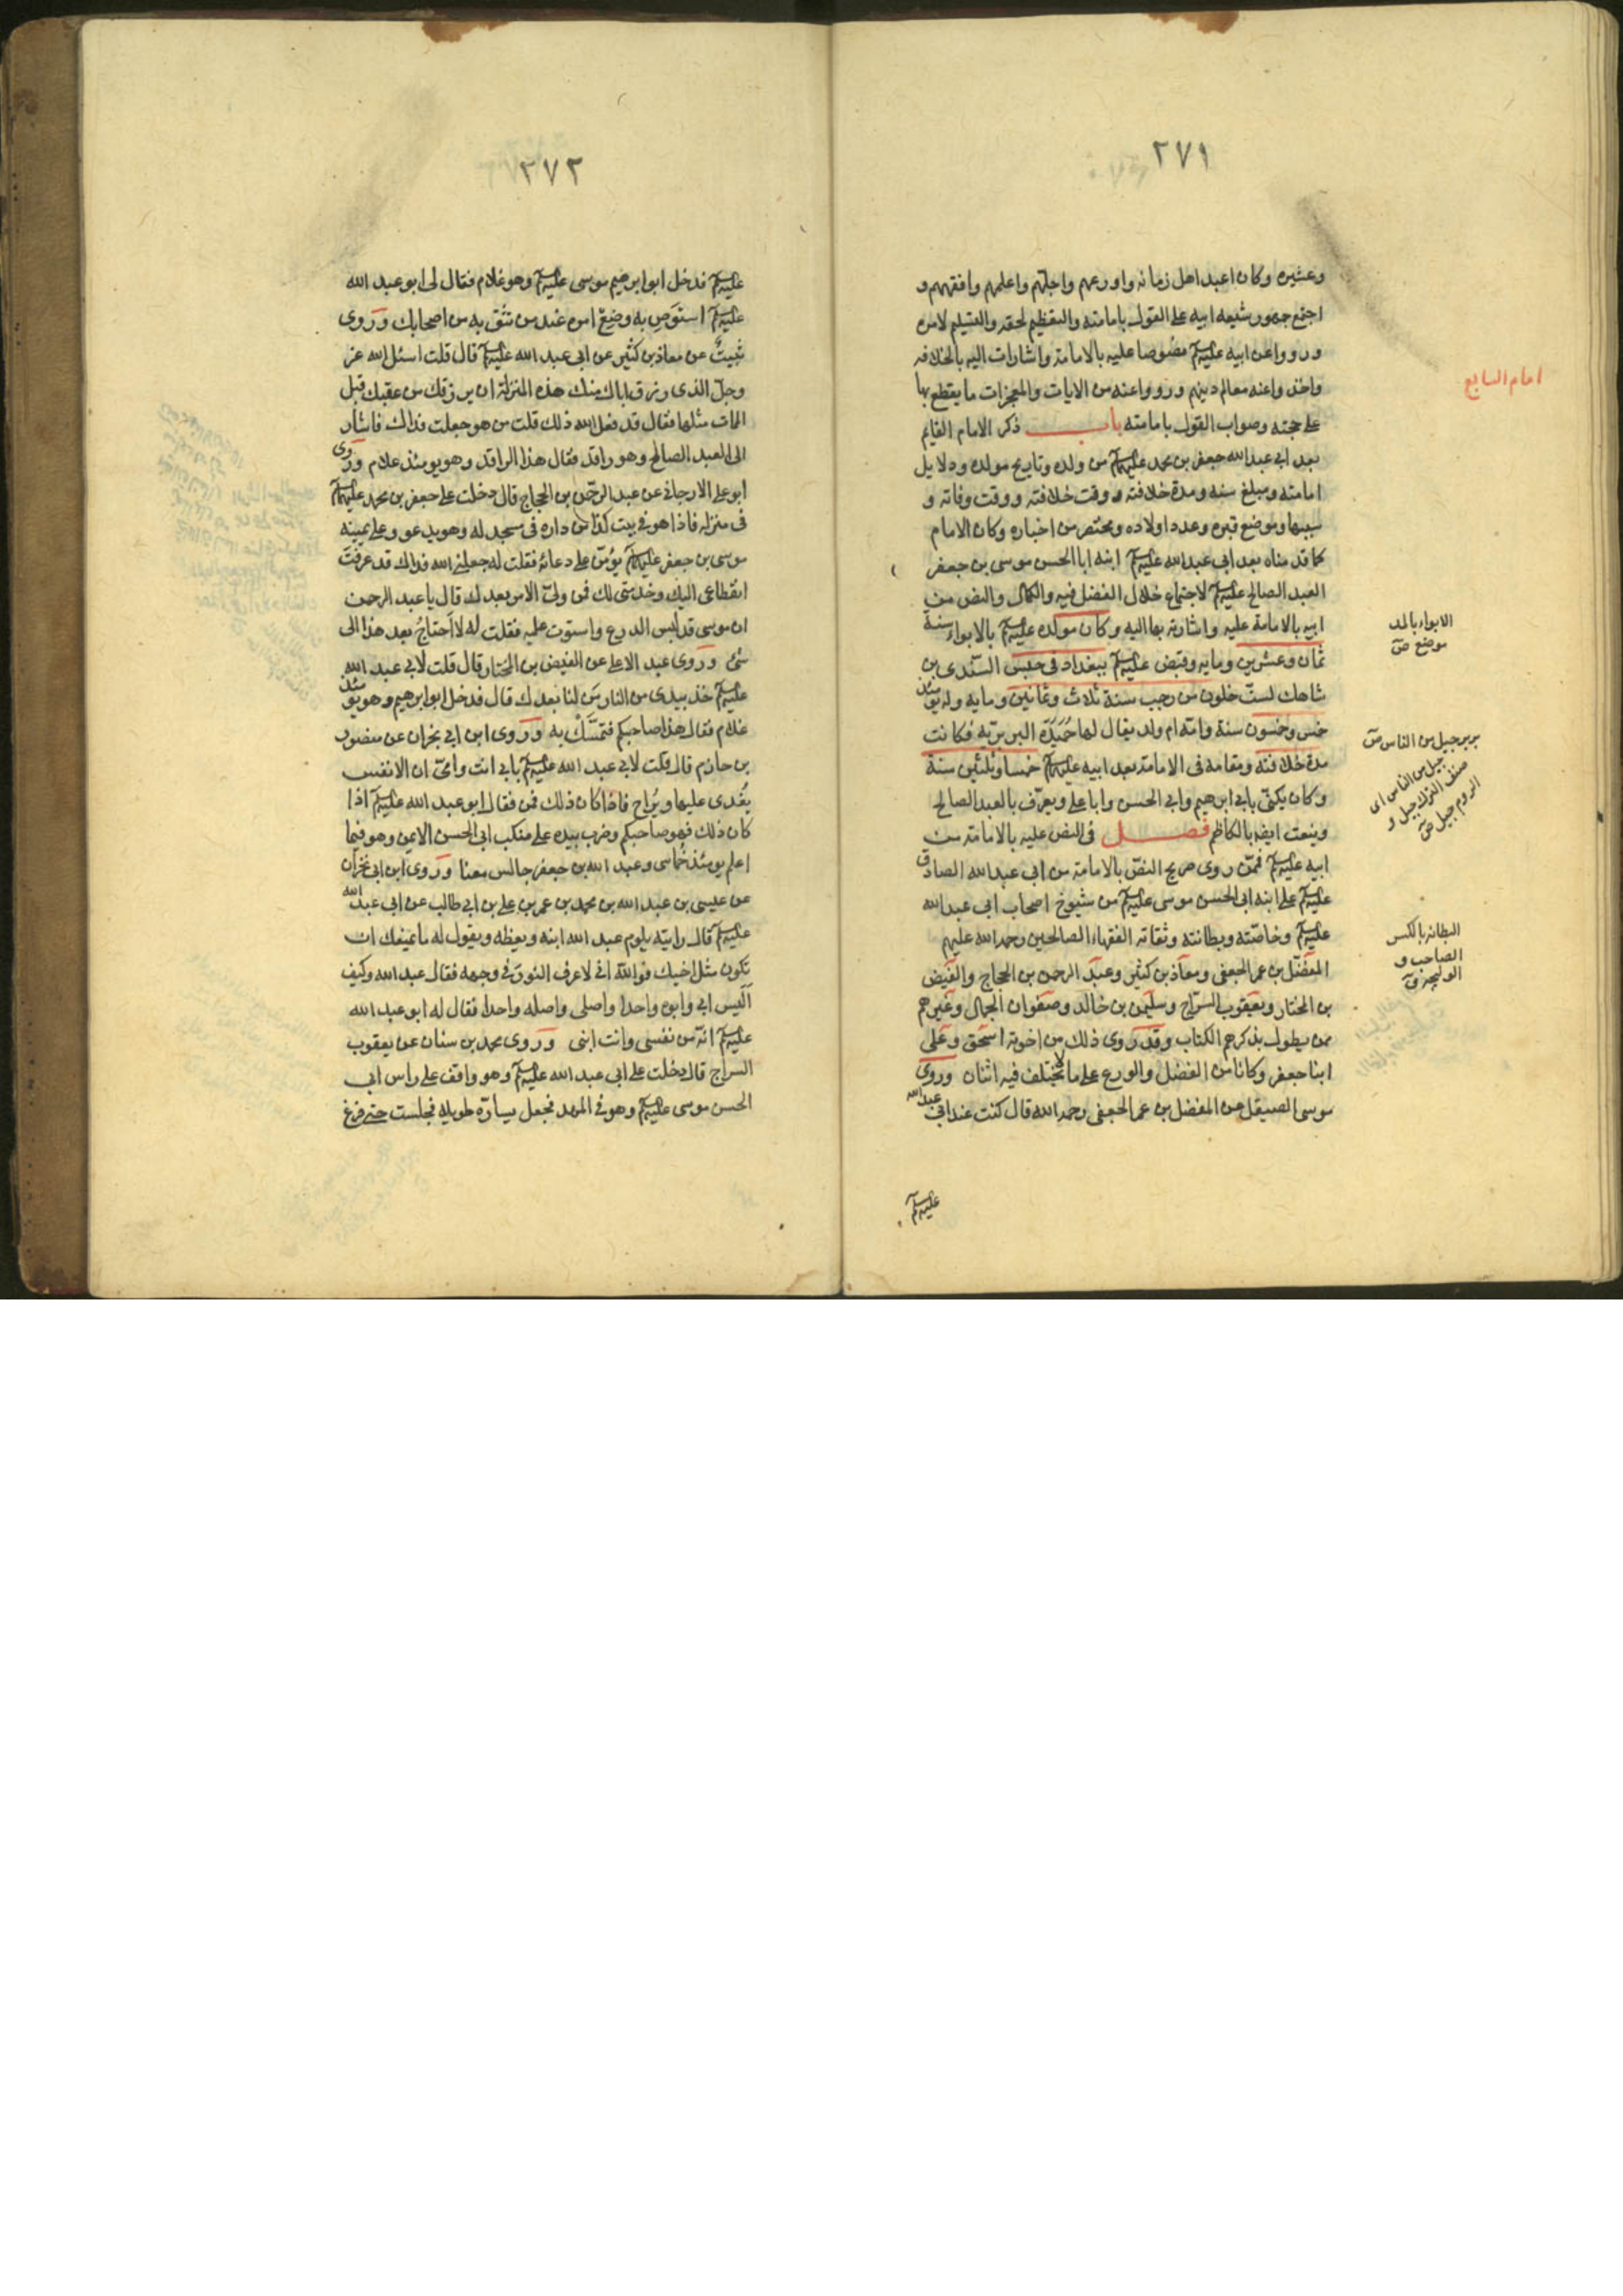 ٢٧١
وعشيره وكان اعبد اهل زمانه واورعهم واجلهم واعلمهم وافقههم و
اجتمع جمهور شيعه ابيه على القول بامامته والتعظيم لحقه والتسليم لامره
ورووا عن ابيه عليه السلم نصوصا عليه بالامامة واشارات اليه بالخلافه
واخذوا عنه معالم دينهم ورووا عنه من الايات والمعجزات ما يقطع بها
على حجته وصواب القول بامامته باب ذكر الامام القايم
بعد ابي عبد الله جعفر بن محمد عليهم السلم من ولده وتاريخ مولده ودلايل
امامته ومبلغ سنه ومدة خلافته ووقت خلافته ووقت وفاته و
سببها وموضع قبره وعدد اولاده ومختصر من اخباره وكان الامام
كما قدمناه بعد ابي عبد الله عليه السلم ابنه ابا الحسن موسى بن جعفر
العبد الصالح عليه السلم لاجتماع خلال الفضل فيه والكمال والنص من
ابيه بالامامة عليه واشارته بها اليه وكان مولده عليه السلم بالابواء سنة
ثمان وعشرين ومايه وقبض عليه السلم ببغداد في حبس السندى بن
شاهك لست خلون من رجب سنة ثلاث وثمانين ومايه وله يومئذ
خمس وخمسون سنة وامه ام ولد يقال لها حميدة البربرية فكانت
مدة خلافته ومقامه في الامامة بعد ابيه عليهم السلم خمسا وثلثين سنة
وكان يكنى بابي ابرهيم وابي الحسن وابا علي ويعرف بالعبد الصالح
وينعت ايضا بالكاظم فصل في النص عليه بالامامة من
ابيه عليه السلم فممن روى صريح النص بالامامة من ابي عبد الله الصادق
عليه السلم على ابنه ابي الحسن موسى عليه السلم من شيوخ اصحاب ابي عبد الله
عليه السلم وخاصته وبطانته وثقاته الفقهاء الصالحين رحمه الله عليهم
المفضل بن عمر الجعفي ومعاذ بن كثير وعبد الرحمن بن الحجاج والفيض
بن المختار ويعقوب السراج وسليمن بن خالد وصفوان الجمال وغيرهم
ممن يطول بذكرهم الكتاب وقد روى ذلك من اخوته اسحق وعلى
ابنا جعفر وكانا من الفضل والورع على ما لا يختلف فيه اثنان وروى
موسى الصيقل عن المفضل بن عمر الجعفي رحمه الله قال كنت عند ابي عبد الله
عليه السلم
امام السابع
الابواء بالمد
موضع ص
بربر جيل من الناس ص
جيل من الناس اى
صنف الترك جيل و
الروم جيل ص
البطانه بالكسر
الصاحب و
الوليجة ق
٢٧٢
عليه السلم فدخل ابو ابرهيم موسى عليه السلم وهو غلام فقال لى ابو عبد الله
عليه السلم استوص به وضع امره عند من تثق به من اصحابك وروى
ثبيت عن معاذ بن كثير عن ابي عبد الله عليه السلم قال قلت اسئل الله عز
وجل الذى رزق اباك منك هذه المنزلة ان يرزقك من عقبك قبل
الممات مثلها فقال قد فعل الله ذلك قلت من هو جعلت فداك فاشار
الى العبد الصالح وهو راقد فقال هذا الراقد وهو يومئذ غلام وروى
ابو علي الارجاني عن عبد الرحمن بن الحجاج قال دخلت على جعفر بن محمد عليهم السلم
في منزله فاذا هو في بيت كذا من داره في مسجد له وهو يدعو وعلى يمينه
موسى بن جعفر عليهم السلم يؤمن على دعائه فقلت له جعلني الله فداك قد عرفت
انقطاعى اليك وخدمتى لك فمن ولى الامر بعدك قال يا عبد الرحمن
ان موسى قد لبس الدرع واستوت عليه فقلت له لا احتاج بعد هذا الى
شئ وروى عبد الاعلى عن الفيض بن المختار قال قلت لابي عبد الله
عليه السلم خذ بيدى من النار من لنا بعدك قال فدخل ابو ابرهيم وهو يومئذ
غلام فقال هذا صاحبكم فتمسك به وروى ابن ابي نجران عن منصور
بن حازم قال قلت لابي عبد الله عليه السلم بابي انت وامي ان الانفس
يغدى عليها ويراح فاذا كان ذلك فمن فقال ابو عبد الله عليه السلم اذا
كان ذلك فهو صاحبكم وضرب بيده على منكب ابي الحسن الايمن وهو فيما
اعلم يومئذ خماسى وعبد الله بن جعفر جالس معنا وروى ابن ابي نجران
عن عيسى بن عبد الله بن محمد بن عمر بن علي بن ابي طالب عن ابي عبد الله
عليه السلم قال رايته يلوم عبد الله ابنه ويعظه ويقول له ما يمنعك ان
تكون مثل اخيك فوالله اني لاعرف النور في وجهه فقال عبد الله وكيف
اليس ابي وابوه واحدا واصلى واصله واحدا فقال له ابو عبد الله
عليه السلم انه من نفسى وانت ابنى وروى محمد بن سنان عن يعقوب
السراج قال دخلت على ابي عبد الله عليه السلم وهو واقف على راس ابي
الحسن موسى عليه السلم وهو في المهد فجعل يساره طويلا فجلست حتى فرغ